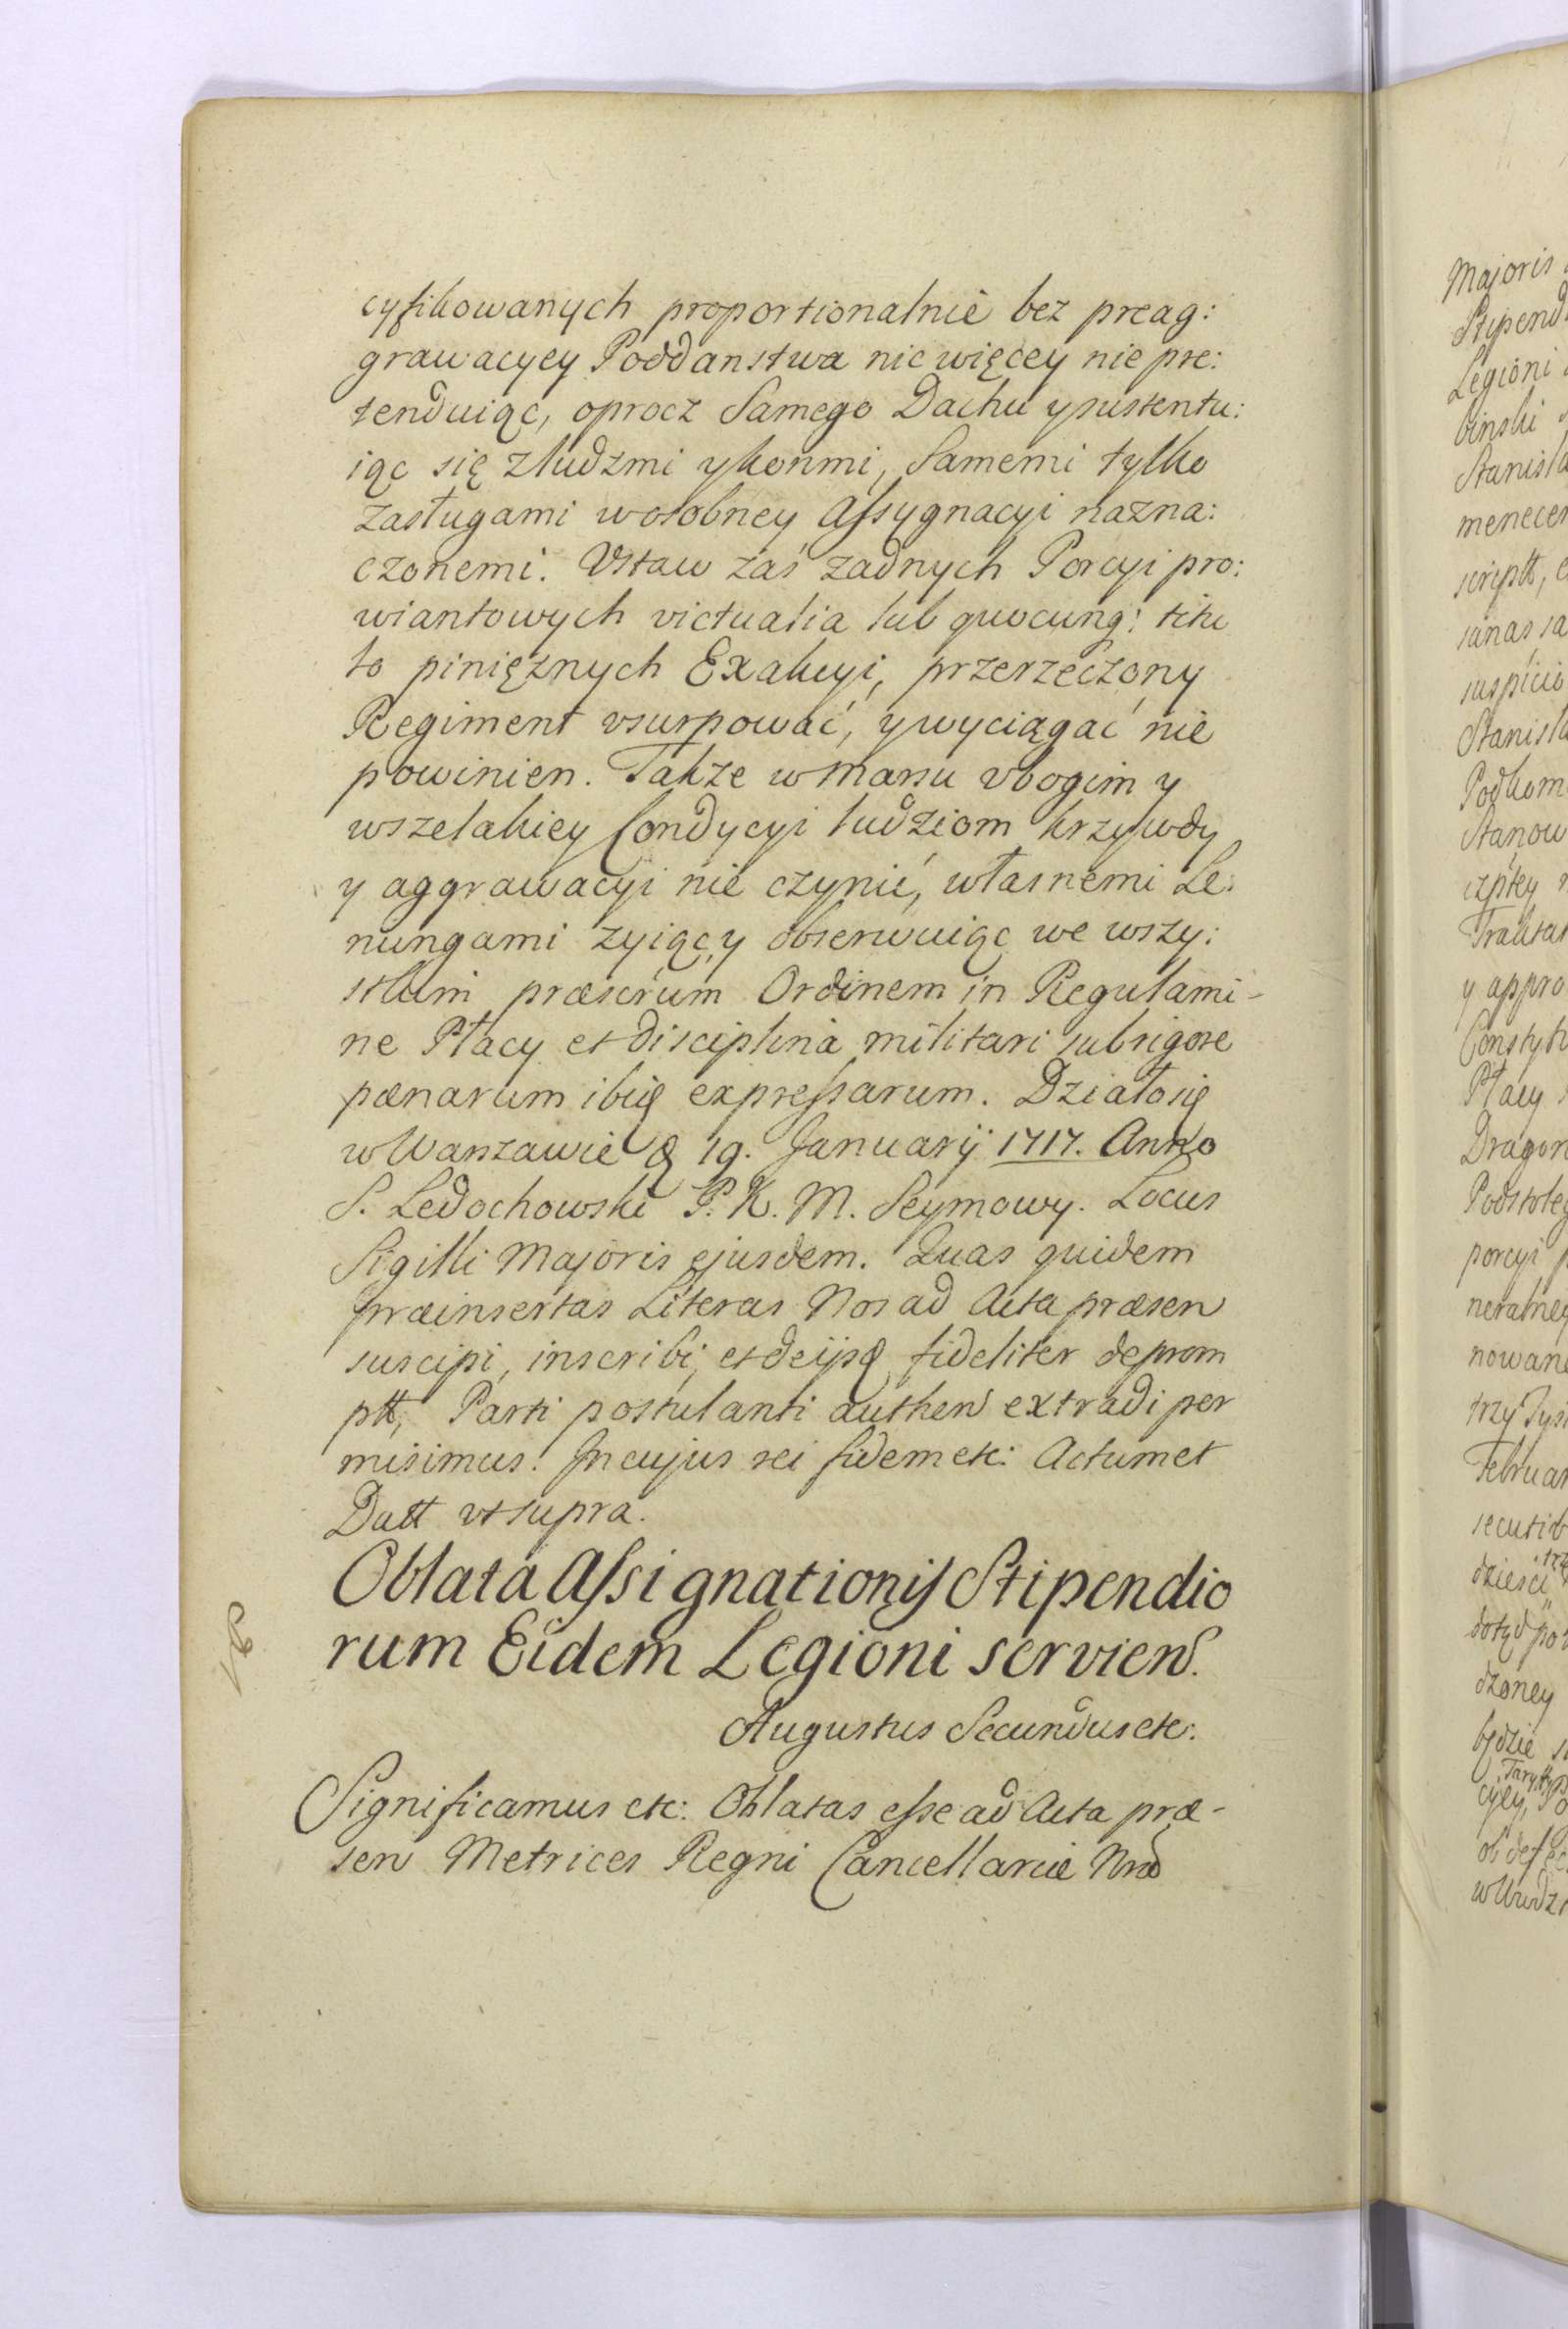 cyfikowanych proportionalnie bez preag:
grawacyey Poddanstwa nic więcey nie pre:
tenduiąc, oprocz Samego Dachu y sustentu:
iąc się z ludzmi y konmi, Samemi tylko
zasługami w osobney Assygnacyi nazna:
czonemi. Vstaw zaś zadnych Porcyi pro:
wiantowych victualia lub quocunq: titu
lo pinięznych Exakcyi, przerzeczony
Regiment vsurpować, y wyciągać nie
powinien. Takze w marsu vbogim y
wszelakiey Condycyi ludziom krzywdy
y aggrawacyi nie czynić, własnemi Le:
nungami zyiąc, y obserwuiąc we wszy:
stkim præscrium Ordinem in Regulami-
ne Płacy et disciplina militari sub rigore
pænarum ibię expressarum. Działo się
w Warszawie d 19. Januarij 1717. Anno
S. Ledochowski P. K. M. Seymowy. Locus
Sigilli Majoris ejusdem. Quas quidem
præinsertas Literas Nos ad Acta præsen
suscipi, inscribi, et de ijsq fideliter deprom
ptt, Parti postulanti authen extradi per
misimus. In cujus rei fidem etc: Actum et
Datt vt supra.
Oblata Assignationis Stipendio
rum Eidem Legioni servien.
Augustus Secundus etc:
Significamus etc: Oblatas esse ad Acta præ-
sen Metrices Regni Cancellariæ Nræ
Majoris
Stipend
Legioni
binski
Stanisła
menecen
scriptt,
sanas sa
suspicio
Stanisła
Podkom
Stanow
czpłey
Traktat
y appro
Constyt
Płacy
Dragon
Podstoleg
porcyi
neralney
nowane
trzy Tysi
Februar
secutiv
dzieści
dotąd po
dzoney
będzie
cyey,
ob def